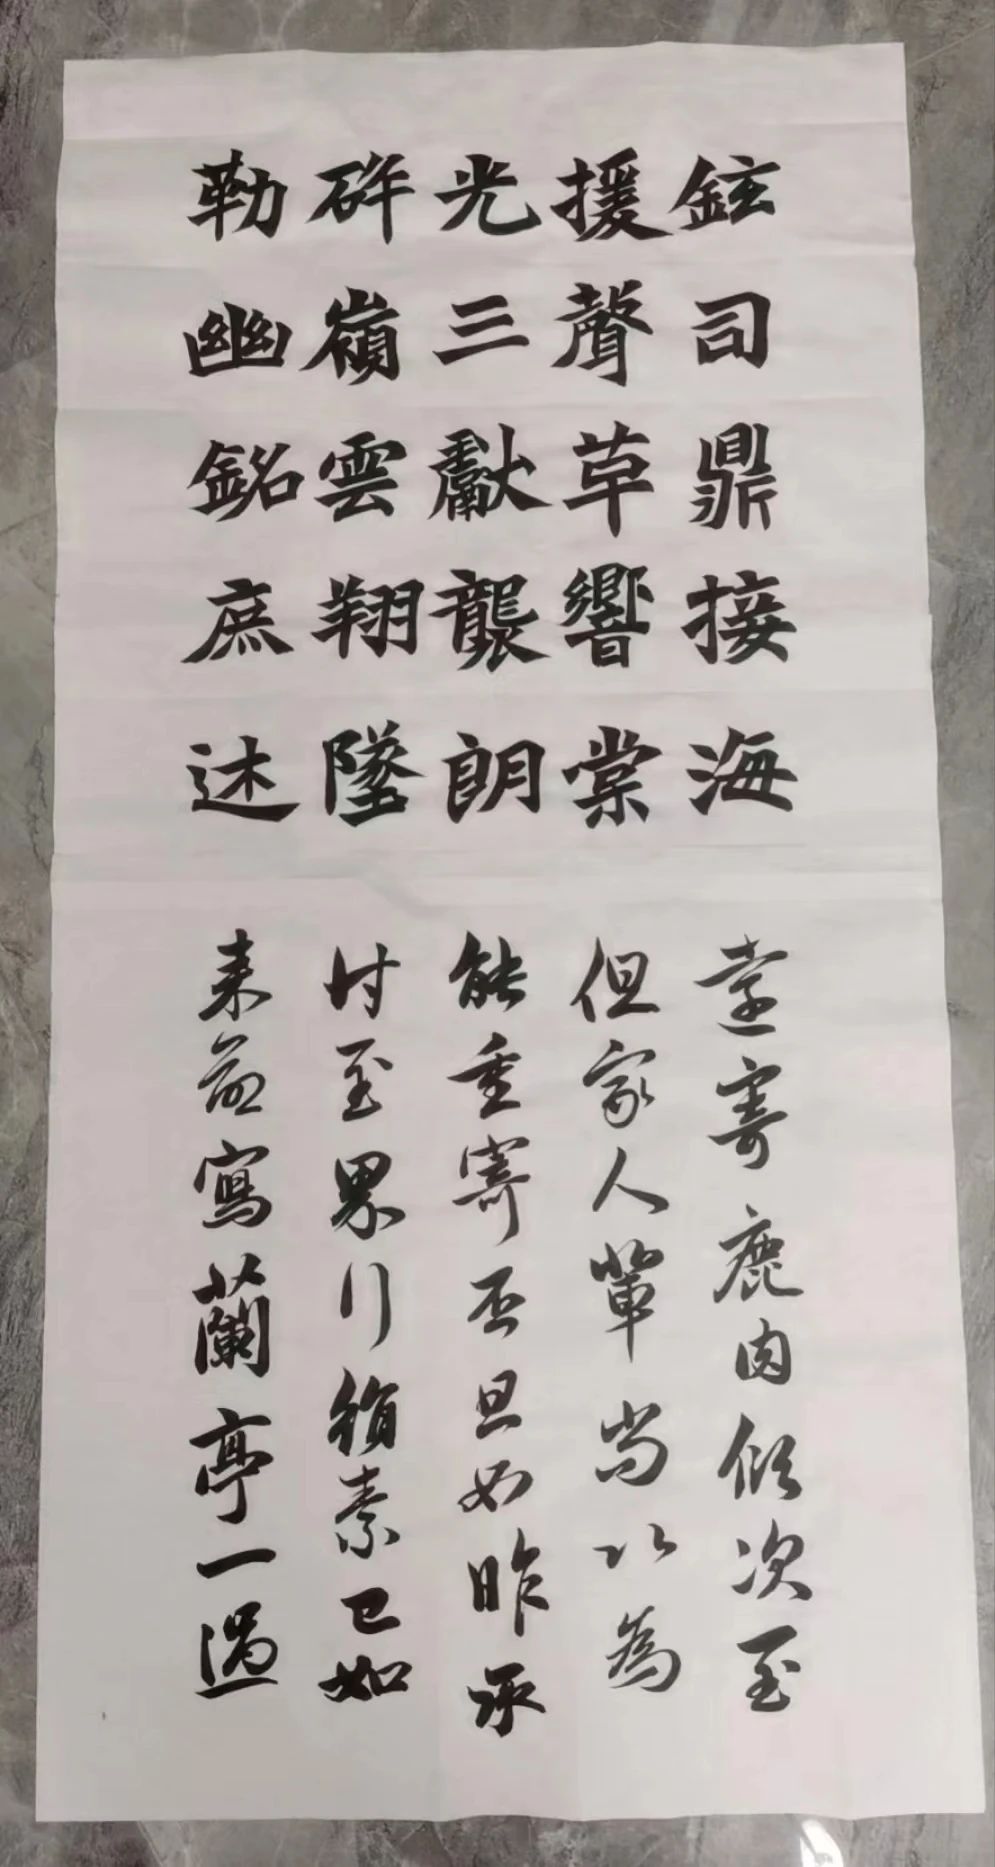 鉉司鼎接海
援聲草響棠
光三獻襲朗
硏嶺雲翔墜
勒幽銘庶述
寄鹿肉似次至
但家人輩尚以為
能重寄否旦如昨承
付至界行領素已如
来前寫蘭亭一過